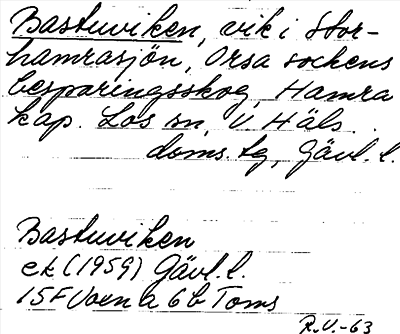 Bastuviken, vik i Stor-
hamrasjön, Orsa sockens
besparingsskog, Hamra
kap. Los sn, V Häls.
doms.tg, Gävl.l.
Bastuviken
ek (1959) Gävl.l.
15F Voxna 6b Toms
R.V.-63